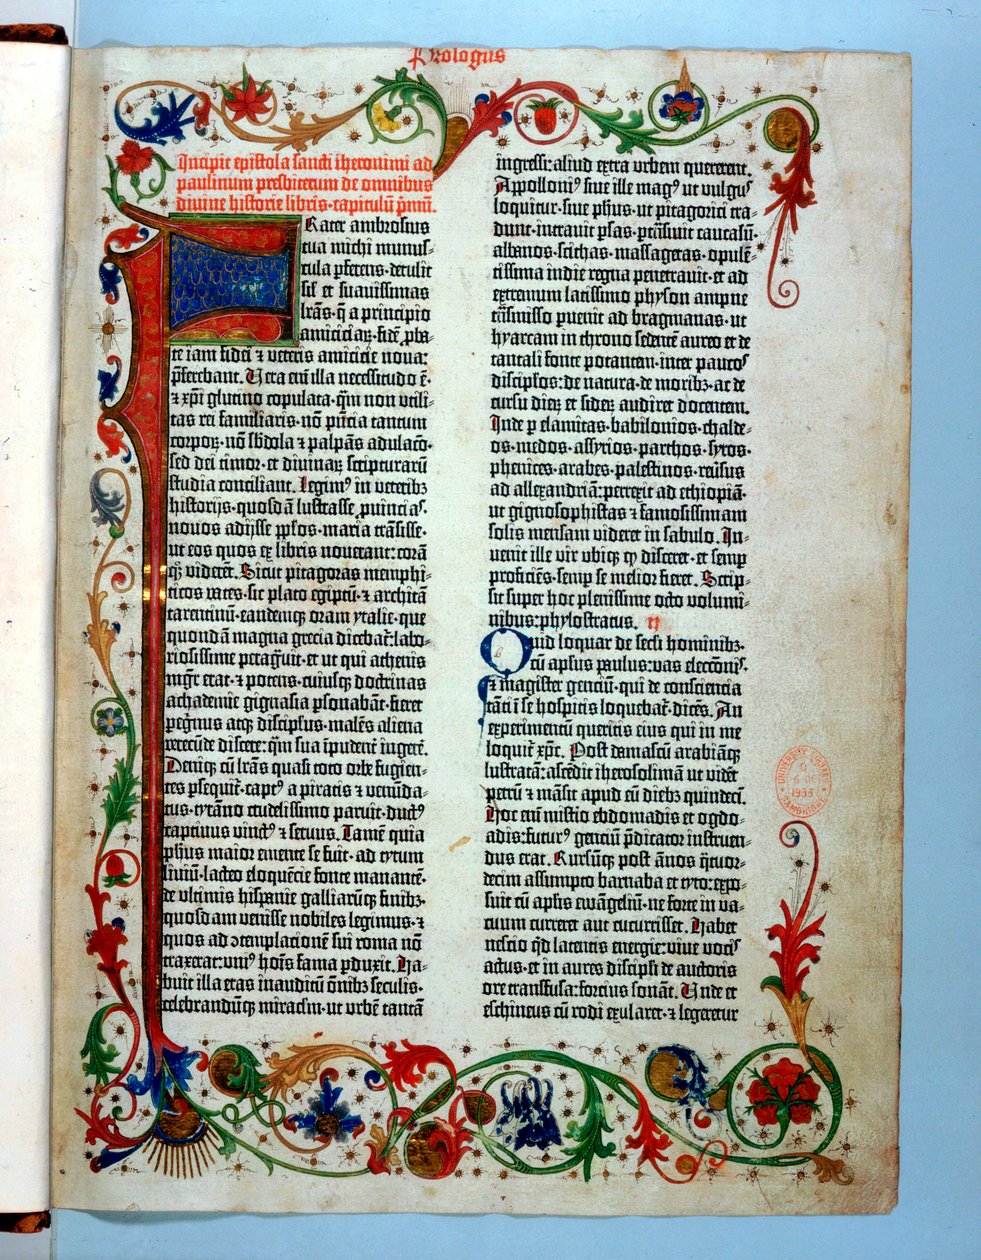 Prologus
Incipit epistola sancti iheronimi ad
paulinum presbiterum de omnibus
divine historie libris·capitulū p̄mū.
Frater ambrosius
tua michi munus-
cula ꝑferens·detulit
sil̄ et suavissimas
lr̄as·q̄ a principio
amiciciaꝝ·fidē ꝓba-
te iam fidei ⁊ veteris amicicie nova:
p̄ferebant. Vera em̄ illa necessitudo ē·
⁊ xp̄i glutino copulata·qm̄ non utili-
tas rei familiaris·nō p̄ntia tantum
corpoꝝ·nō sbdola ⁊ palpās adulacō·
sed dei timor·et divinaꝝ scripturarū
studia conciliant. Legim⁹ in veteribꝫ
historijs·quosdā lustrasse ꝓuincias·
novos adijsse pp̄los·maria trāsisse·
ut eos quos ex libris noverant: corā
qꝫ viderēt. Sicut pitagoras memphi-
ticos vates·sic plato egiptū·⁊ architā
tarentinū·eandemqꝫ oram ytalie·que
quondā magna grecia dicebat̄: labo-
riosissime peragͣvit·et ut qui athenis
mgr̄ erat·⁊ potens·cuiusqꝫ doctrinas
achademie gignasia ꝑsonabāt·fieret
peg̓nus atqꝫ discipl̓us·malēs aliena
verecūde discere: qͣm sua īpudent̄ ingerē.
Deniqꝫ cū lr̄as quasi toto orbe fugien-
tes ꝑsequit̄·capt⁹ a piratis ⁊ venūda-
tus·tyrāno crudelissimo paruit·duct⁹
captivus vinct⁹ ⁊ servus. Tamē quia
ph̄us maior emente se fuit·ad tytum
liviū·lacteo eloquēcie fonte manantē·
de ultimis hispanie galliarūqꝫ finibꝫ·
quosdam venisse nobiles legimus·⁊
quos ad ꝯtemplacionē sui roma nō
traxerat: uni⁹ hoīs fama ꝑduxit. Ha-
buit illa etas inauditū oībus seculis·
celebrandūqꝫ miracl̓m·ut urbē tantā
ingressi: aliud extra urbem quererent.
Appolloni⁹ sive ille mag⁹ ut vulgus
loquitur·sive ph̄us·ut pitagorici tra-
dunt·intravit ꝑsas·ꝑtrāsivit caucasū·
albanos·scithas·massagetas·opulē-
tissima indie regna penetravit·et ad
extremum latissimo physon ampne
trāsmisso ꝑvenit ad bragmanas·ut
hyarcam in throno sedentē aureo et de
tantali fonte potantem·inter paucos
discipl̓os: de natura·de moribꝫ·ac de
cursu dieꝝ et sideꝝ audiret docentem.
Inde ꝑ elamitas·babilonios·chalde-
os·medos·assyrios·parthos·syros·
phenices·arabes·palestinos·rev̄sus
ad allexandriā: perrexit ad ethiopiā·
ut gignosophistas ⁊ famosissimam
solis mensam videret in sabulo. In-
venit ille vir ubiqꝫ qͩ disceret·et semꝑ
proficiēs·semꝑ se melior fieret. Scrip-
sit super hoc plenissime octo volumi-
nibus: phylostratus. II
Quid loquar de secl̓i hominibꝫ·
cū apl̓us paulus: vas elecc̄onis·
⁊ magister genciū·qui de consciencia
tāti ī se hospitis loquebat̄·dicēs. An
experimentū queritis eius qui in me
loquit̄ xp̄c. Post damascū arabiāqꝫ
lustratā: ascēdit iherosolimā ut vidēt
petrū ⁊ māsit apud eū diebꝫ quindecī.
Hoc em̄ misterio ebdomadis et ogdo-
adis: futur⁹ genciū p̄dicator instruen-
dus erat. Rursūqꝫ post ānos qͣtuor-
decim assumpto barnaba et tyto: expo-
suit cū apl̓is ewāgeliū·ne forte in va-
cuum curreret aut cucurrisset. Habet
nescio qͩd latentis energie: vive vocis
actus·et in aures discipl̓i de auctoris
ore transfusa: forcius sonat. Unde et
eschineus cū rodi exularet·⁊ legeretur
UNIVERSITY LIBRARY
6 OC
1933
CAMBRIDGE